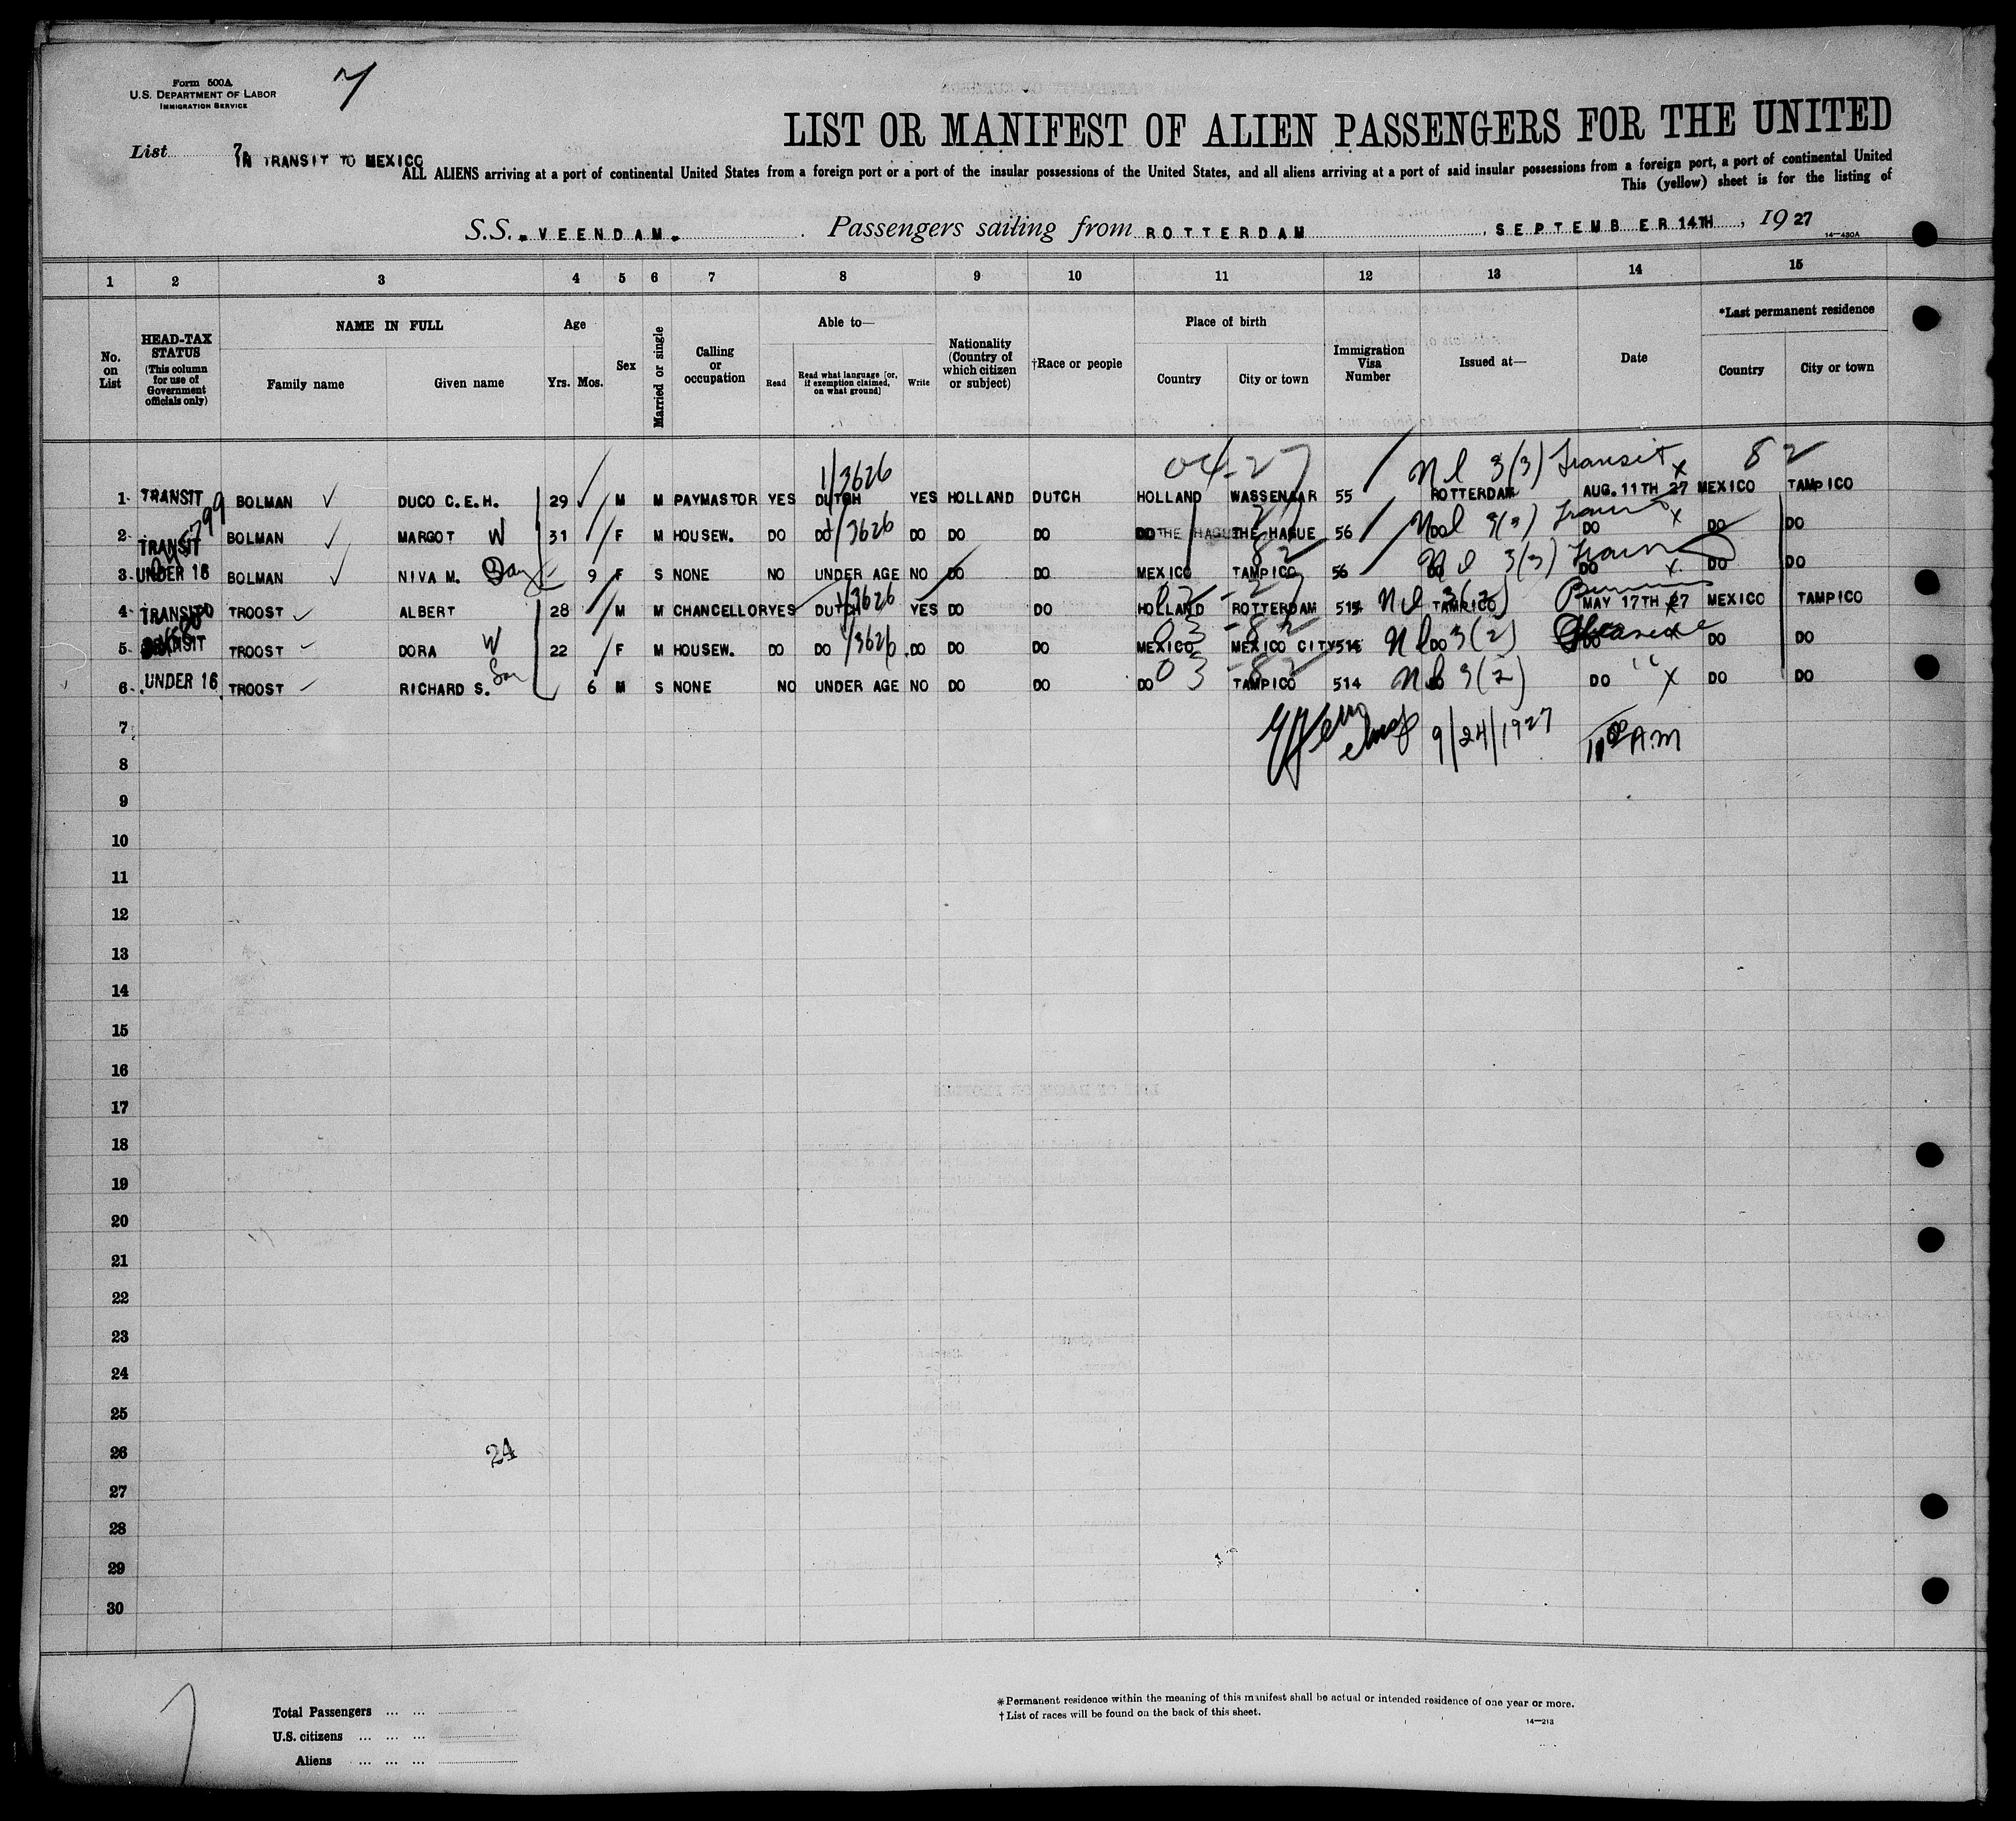 Form 500A
U.S. DEPARTMENT OF LABOR
IMMIGRATION SERVICE
7
LIST OR MANIFEST OF ALIEN PASSENGERS FOR THE UNITED
List 7
IN TRANSIT TO MEXICO
ALL ALIENS arriving at a port of continental United States from a foreign port or a port of the insular possessions of the United States, and all aliens arriving at a port of said insular possessions from a foreign port, a port of continental United
This (yellow) sheet is for the listing of
S.S. "VEENDAM" Passengers sailing from ROTTERDAM, SEPTEMBER 14TH, 1927
14—430A
1 2 3 4 5 6 7 8 9 10 11 12 13 14 15
No. on List
HEAD-TAX STATUS (This column for use of Government officials only)
NAME IN FULL
Family name
Given name
Age
Yrs. Mos.
Sex
Married or single
Calling or occupation
Able to—
Read
Read what language [or, if exemption claimed, on what ground]
Write
Nationality (Country of which citizen or subject)
†Race or people
Place of birth
Country
City or town
Immigration Visa Number
Issued at—
Date
*Last permanent residence
Country
City or town
1/3626 04-27 Nl 3(3) Transit x 82
1 TRANSIT BOLMAN DUCO C.E.H. 29 M M PAYMASTOR YES DUTCH YES HOLLAND DUTCH HOLLAND WASSENAAR 55 ROTTERDAM AUG. 11TH 27 MEXICO TAMPICO
2 TRANSIT BOLMAN MARGOT W 31 F M HOUSEW. DO DO 1/3626 DO DO DO DO THE HAGUE THE HAGUE 56 DO Nl 3(3) DO x DO DO
3 UNDER 16 BOLMAN NIVA M. 9 F S NONE NO UNDER AGE NO DO DO MEXICO TAMPICO 82 56 DO Nl 3(3) DO x DO DO
4 TRANSIT TROOST ALBERT 28 M M CHANCELLOR YES DUTCH 1/3626 YES DO DO HOLLAND ROTTERDAM 514 Nl 3(2) TAMPICO MAY 17TH 27 MEXICO TAMPICO
5 TRANSIT TROOST DORA W 22 F M HOUSEW. DO DO 1/3626 DO DO DO MEXICO MEXICO CITY 03-82 514 Nl 3(2) DO DO DO DO
6 UNDER 16 TROOST RICHARD S. Son 6 M S NONE NO UNDER AGE NO DO DO DO TAMPICO 03-82 514 Nl 3(2) DO DO " x DO DO
7 9/24/1927 10 00 A.M
8
9
10
11
12
13
14
15
16
17
18
19
20
21
22
23
24
25
26 24
27
28
29
30
*Permanent residence within the meaning of this manifest shall be actual or intended residence of one year or more.
†List of races will be found on the back of this sheet.
14—213
Total Passengers
U.S. citizens
Aliens